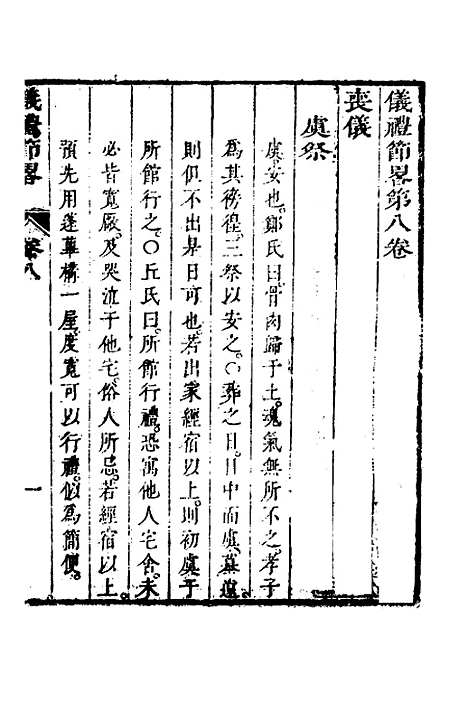 儀禮節畧第八卷
喪儀
虞祭
虞安也。鄭氏曰。骨肉歸于土。魂氣無所不之。孝子
為其徬徨。三祭以安之。〇葬之日。日中而虞。墓遠。
則但不出是日可也。若出家經宿以上。則初虞于
所館行之。〇丘氏曰。所館行禮。恐寓他人宅舍。未
必皆寬厰。及哭泣于他宅。俗人所忌。若經宿以上。
預先用蘧蓽構一屋。度寬可以行禮。似為簡便。
儀禮節畧
卷八
一